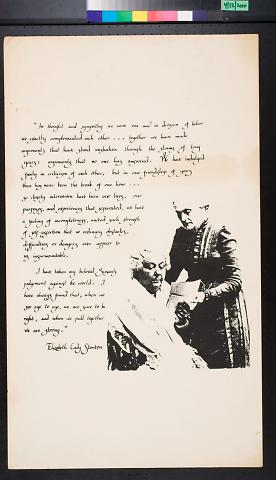 "In thought and sympathy we were one and in division of labor
we exactly complemented each other . . . together we have made
arguments that have stood unshaken through the storms of long
years: arguments that no one has answered. We have indulged
freely in criticism of each other, but in our friendship of years
there has never been the break of one hour . . .
so closely interwoven have been our lives, our
purposes, and experiences that separated, we have
a feeling of incompleteness; united, such strength
of self-assertion that no ordinary obstacles,
difficulties or dangers ever appear to
us insurmountable.
I have taken my beloved Susan's
judgement against the world. I
have always found that, when we
see eye to eye, we are sure to be
right, and when we pull together
we are strong."
Elizabeth Cady Stanton